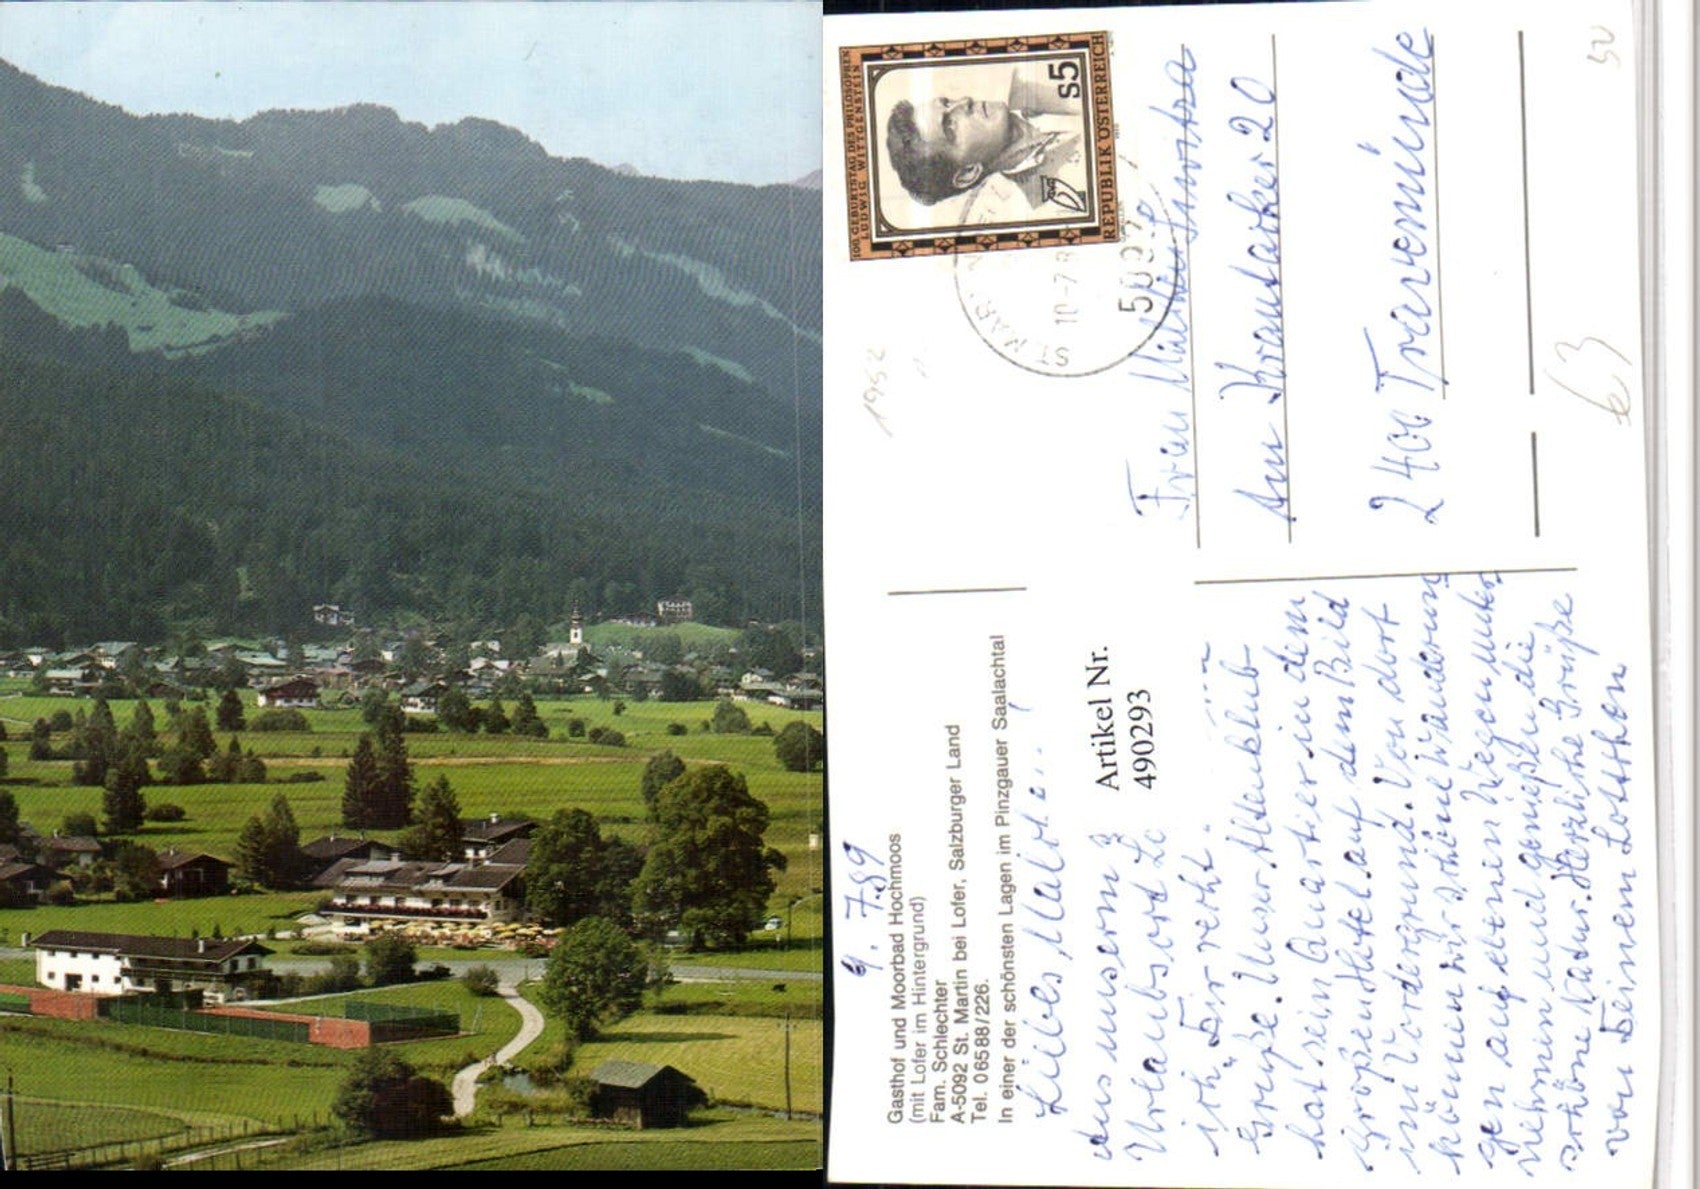 100. GEBURTSTAG DES PHILOSOPHEN
LUDWIG WITTGENSTEIN
S5
REPUBLIK ÖSTERREICH
ST. MARTIN
10-7-8
5092
1952
50
63
Frau
Am Krautacker 20
2400 Travemünde
Gasthof und Moorbad Hochmoos
(mit Lofer im Hintergrund)
Fam. Schlechter
A-5092 St. Martin bei Lofer, Salzburger Land
Tel. 0 65 88/226.
In einer der schönsten Lagen im Pinzgauer Saalachtal
Artikel Nr.
490293
9. 7.89
Liebes
Aus unserm
Urlaubsort
ich Dir recht
Grüße. Unser
hat sein Quartier in dem
großen Hotel auf dem Bild
im Vordergrund. Von dort
können wir schöne Wanderun
gen auf ebenen Wegen unter
nehmen und genießen die
schöne Natur. Herzliche Grüße
von Deinem Lottchen